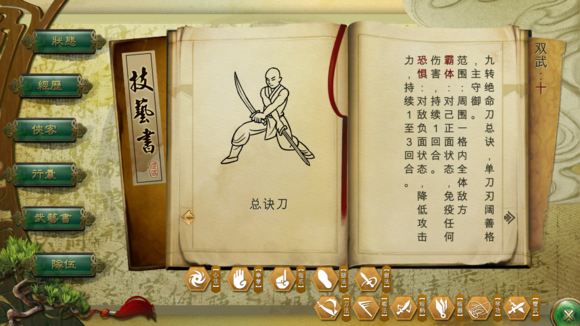 狀態
經歷
俠客
行囊
武藝書
隊伍
技藝書
总诀刀
双武：十
九转绝命刀总诀，单刀刃阔善格
，主守御。
范围：周围一格内全体敌方
霸体：对己正面状态，免疫任何
伤害，持续1回合。
恐惧：对敌负面状态，降低攻击
力，持续1至3回合。